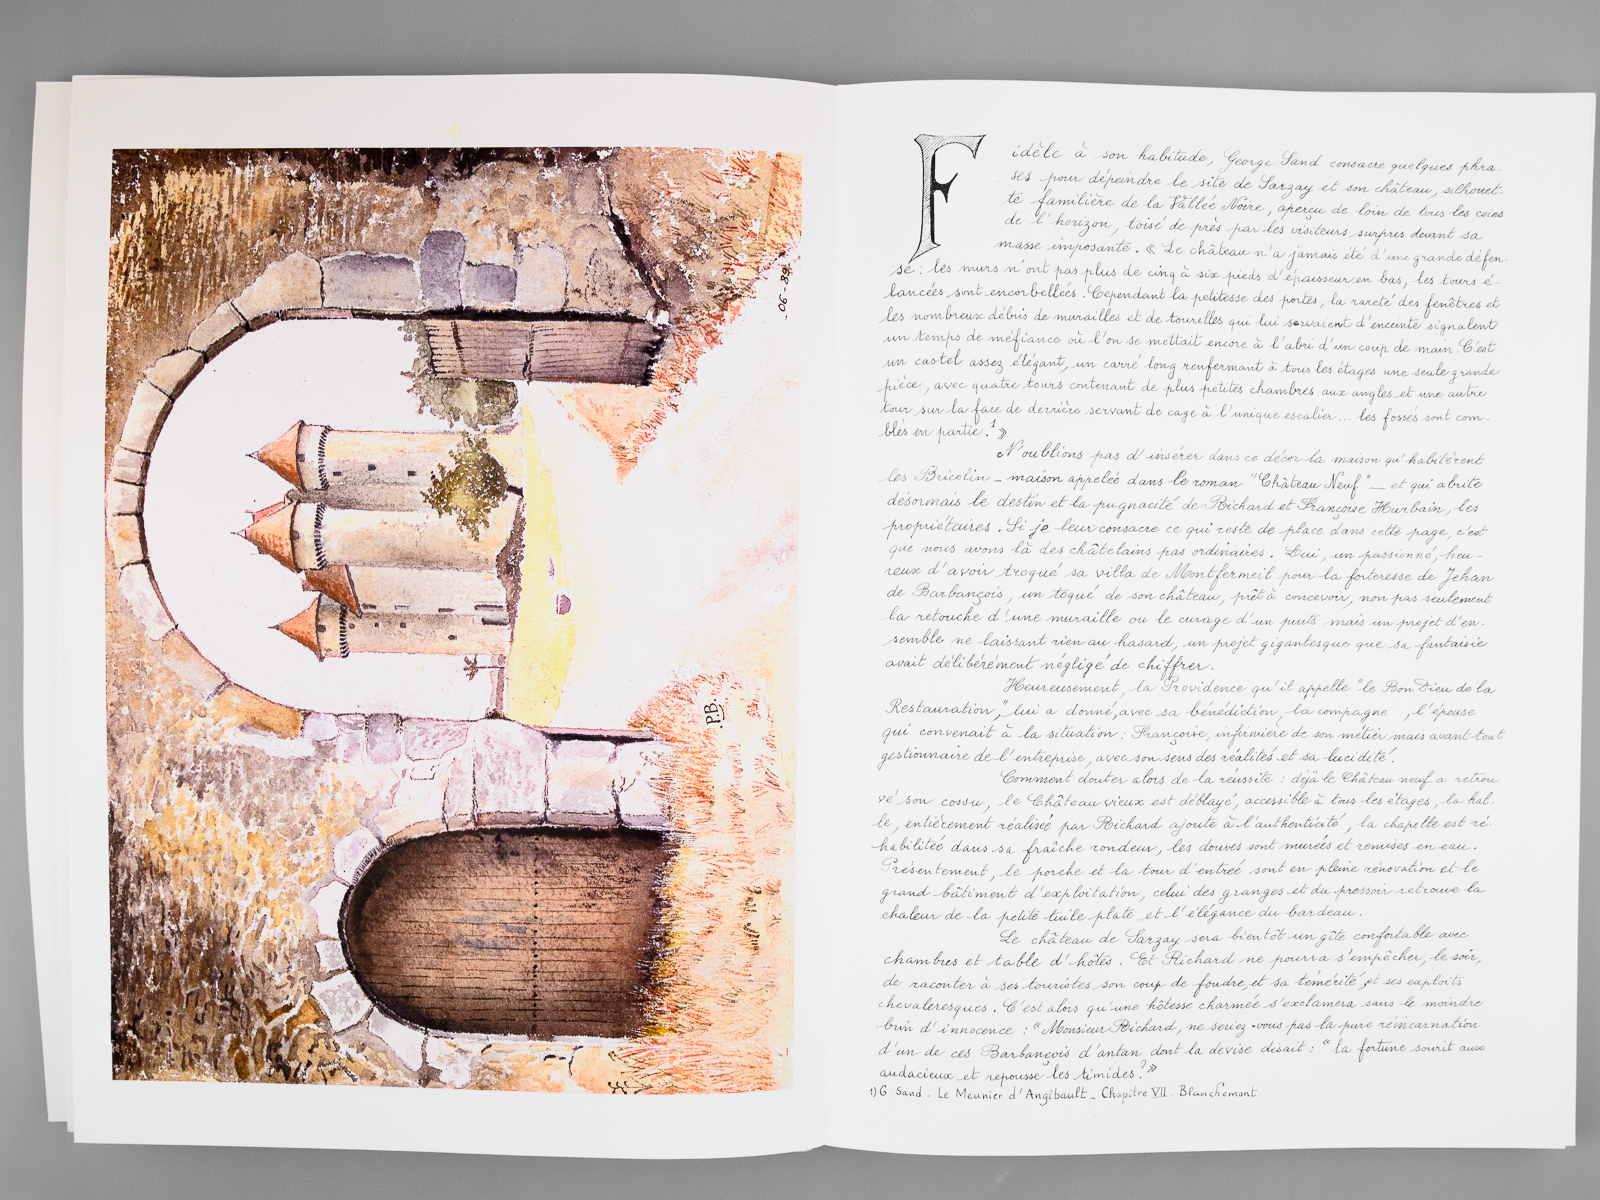 P.B.
06.89
Fidèle à son habitude, George Sand consacre quelques phra-
ses pour dépeindre le site de Sarzay et son château, silhouet-
te familière de la Vallée Noire, aperçu de loin de tous les coins
de l'horizon, toisé de près par les visiteurs surpris devant sa
masse imposante. « Le château n'a jamais été d'une grande défen-
se : les murs n'ont pas plus de cinq à six pieds d'épaisseur en bas, les tours é-
lancées sont encorbellées. Cependant la petitesse des portes, la rareté des fenêtres et
les nombreux débris de murailles et de tourelles qui lui servaient d'enceinte signalent
un temps de méfiance où l'on se mettait encore à l'abri d'un coup de main. C'est
un castel assez élégant, un carré long renfermant à tous les étages une seule grande
pièce, avec quatre tours contenant de plus petites chambres aux angles et une autre
tour sur la face de derrière servant de cage à l'unique escalier... les fossés sont com-
blés en partie.1 »
N'oublions pas d'insérer dans ce décor la maison qu'habitèrent
les Bricolin _ maison appelée dans le roman "Château Neuf" _ et qui abrite
désormais le destin et la pugnacité de Richard et Françoise Hurbain, les
propriétaires. Si je leur consacre ce qui reste de place dans cette page, c'est
que nous avons là des châtelains pas ordinaires. Lui, un passionné, heu-
reux d'avoir troqué sa villa de Montfermeil pour la forteresse de Jehan
de Barbançois, un toqué de son château, prêt à concevoir, non pas seulement
la retouche d'une muraille ou le curage d'un puits mais un projet d'en-
semble ne laissant rien au hasard, un projet gigantesque que sa fantaisie
avait délibérément négligé de chiffrer.
Heureusement, la Providence qu'il appelle "le Bon Dieu de la
Restauration", lui a donné, avec sa bénédiction, la compagne , l'épouse
qui convenait à la situation : Françoise, infirmière de son métier mais avant tout
gestionnaire de l'entreprise, avec son sens des réalités et sa lucidité.
Comment douter alors de la réussite : déjà le Château neuf a retrou
vé son cossu, le Château vieux est déblayé, accessible à tous les étages, la hal-
le, entièrement réalisée par Richard ajoute à l'authenticité, la chapelle est ré-
habilitée dans sa fraîche rondeur, les douves sont murées et remises en eau.
Présentement, le porche et la tour d'entrée sont en pleine rénovation et le
grand bâtiment d'exploitation, celui des granges et du pressoir retrouve la
chaleur de la petite tuile plate et l'élégance du bardeau.
Le château de Sarzay sera bientôt un gîte confortable avec
chambres et table d'hôtes. Et Richard ne pourra s'empêcher, le soir,
de raconter à ses touristes son coup de foudre et sa témérité, et ses exploits
chevaleresques. C'est alors qu'une hôtesse charmée s'exclamera sans le moindre
brin d'innocence : "Monsieur Richard, ne seriez-vous pas la pure réincarnation
d'un de ces Barbançois d'antan dont la devise disait : "la fortune sourit aux
audacieux et repousse les timides ? »
1) G. Sand - Le Meunier d'Angibault _ Chapitre VII - Blanchemont